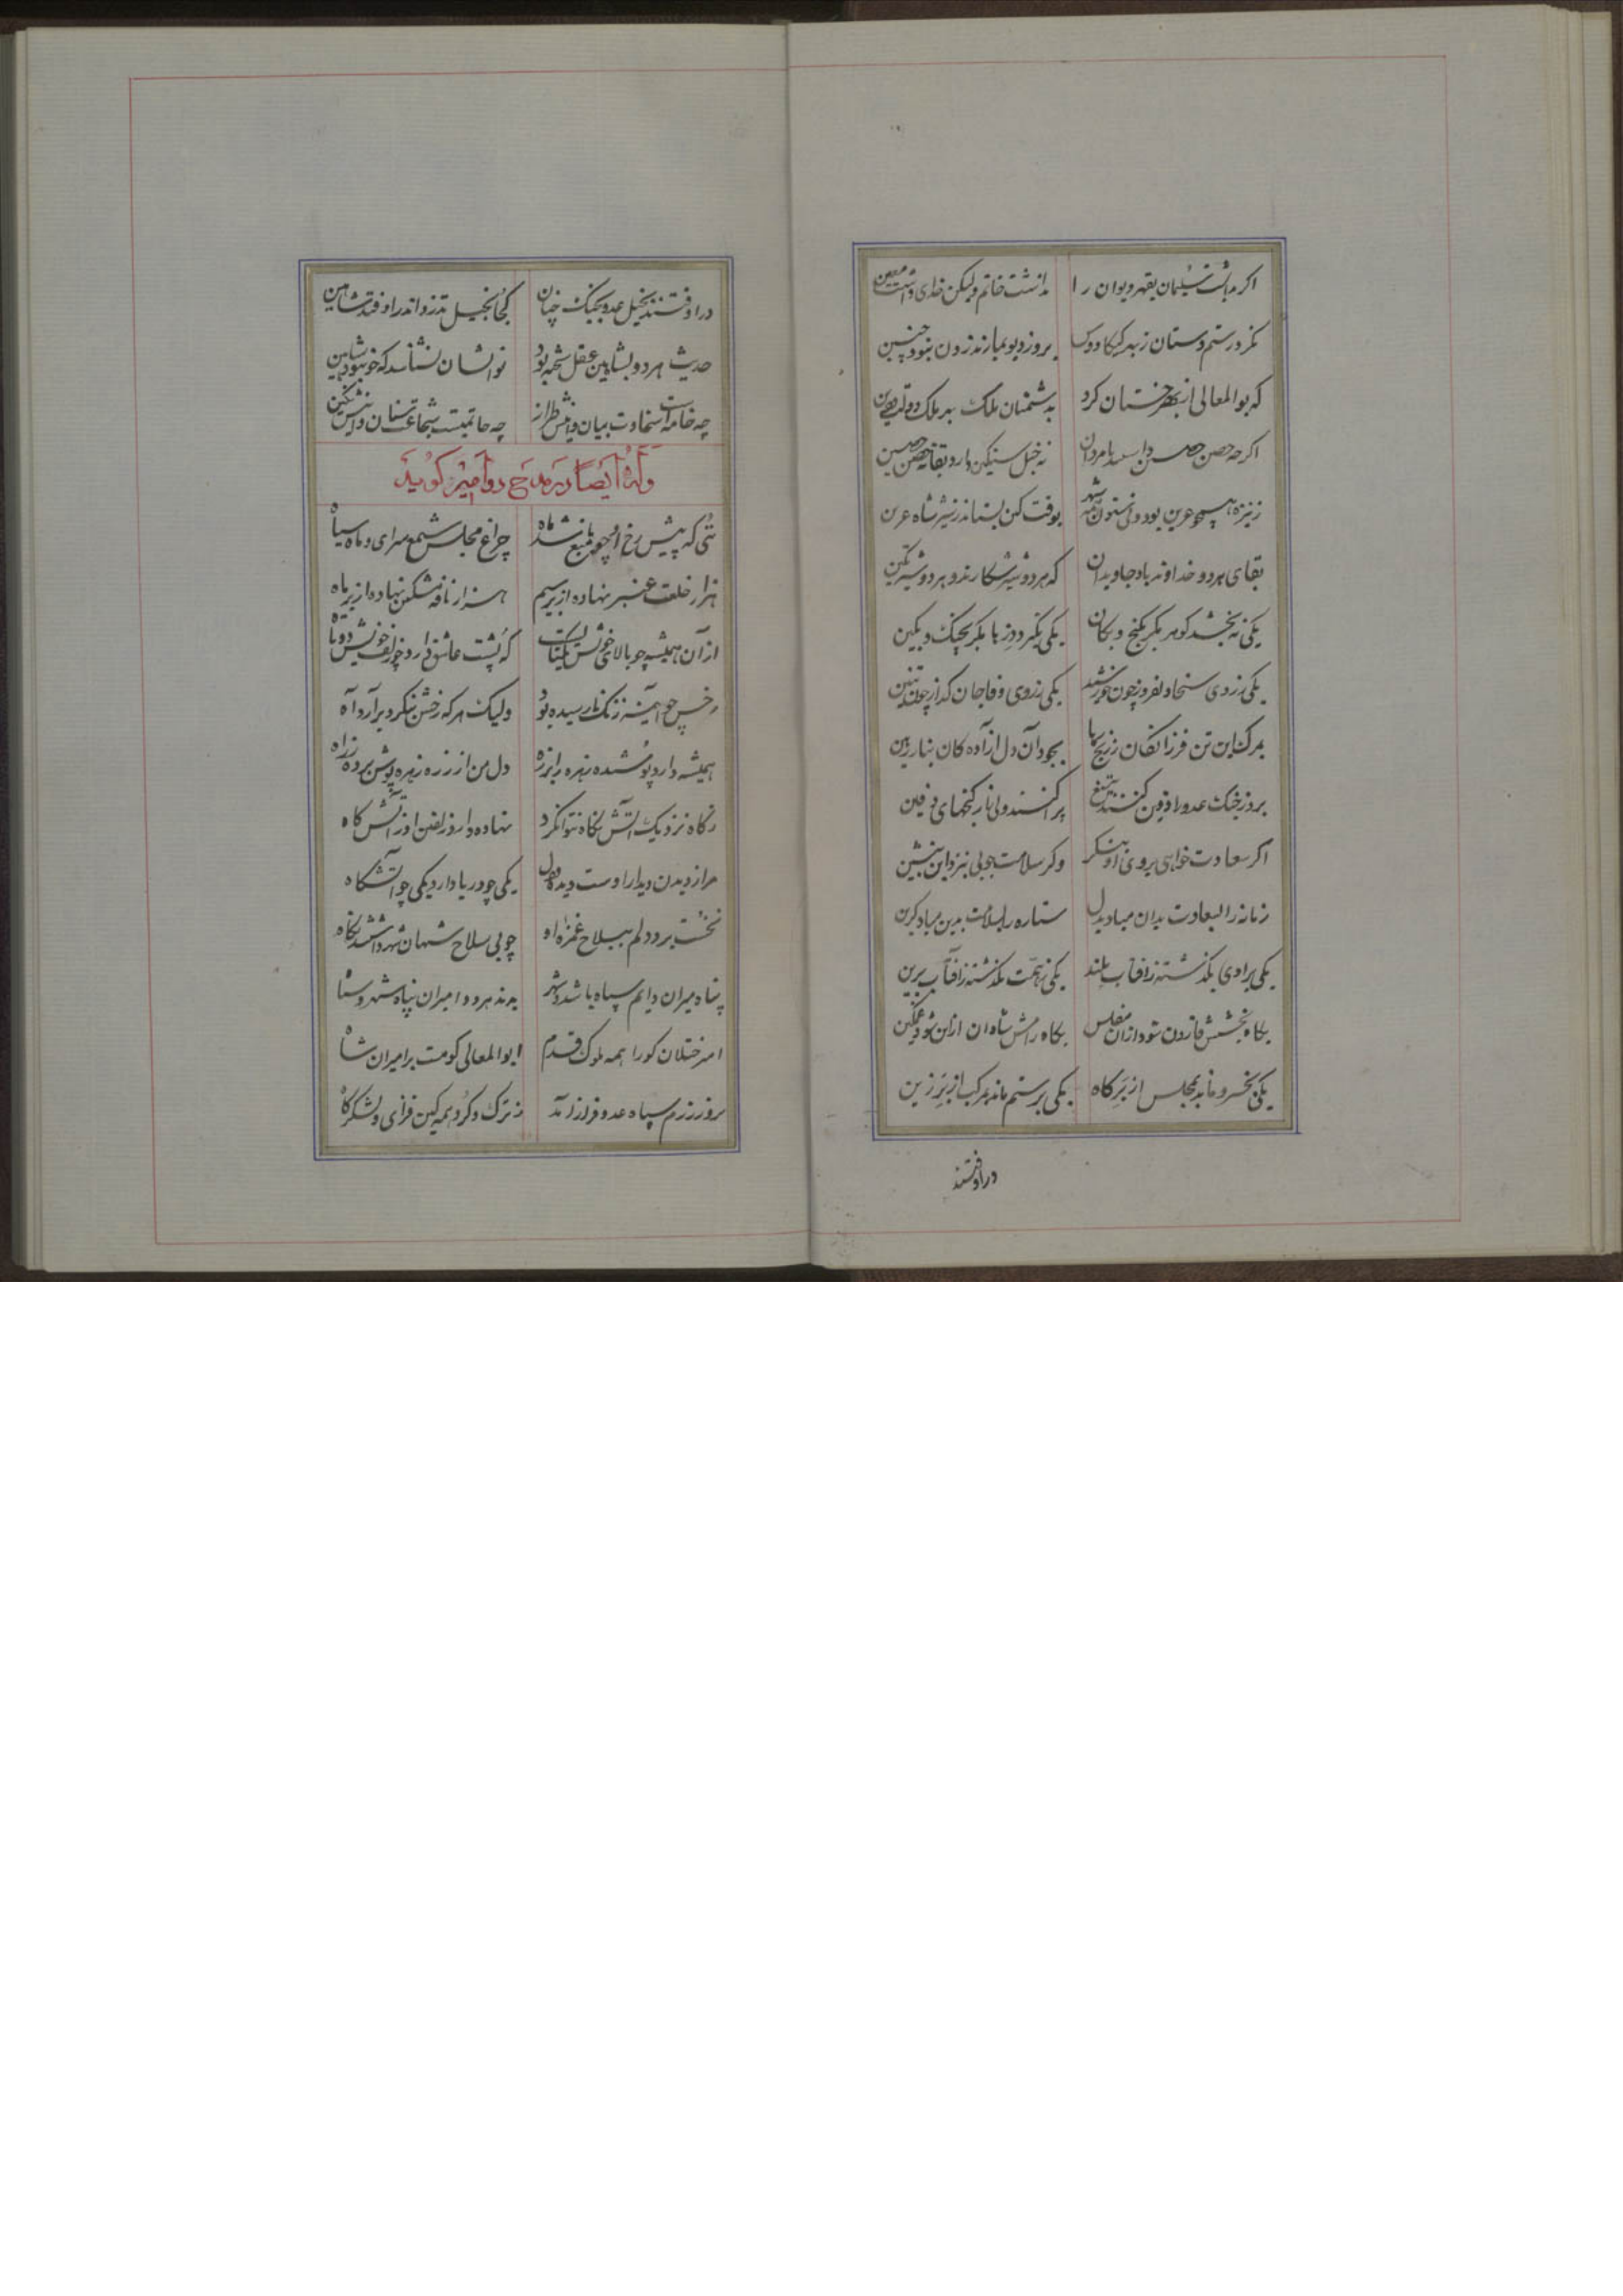 اکر بداشت سلیمان بقهر دیوان را نداشت خاتم ولیکن خدای داشت معین
نکرد رستم دستان ز بهر کیکاووس بروز دیو بمازندرون نبود چنین
که بوالمعالی از بهر ختلان کرد بدشمنان ملک بر ملک
اکرچه حصن حصین دارند نه خیل سنکین دارد بقا نه حصن حصین
ز نیزه همچو عرین بود بوقت کین بستاند ز شیر شاه عرین
بقای هر دو خداوند باد جاویدان که هر دو شیر شکارند و هر دو شیر مکین
یکی نه بخشد کوهر مکر بکنج و بکان یکی نکیرد دژها مکر بجنک و بکین
یکی ز روی سخا دلفروز چون خورشید یکی ز روی وفا جان کداز چون تنین
بمرک این تن فرزانکان ز رنج بجود آن دل آزاده کان نیاز رهین
بروز جنک عدو را دفین کنند بتیغ پراکنند ولی را ز کنجهای دفین
اکر سعادت خواهی بروی او بنکر وکر سلامت جویی بنزد این بنشین
زمانه را بسعادت بدان مباد بدل ستاره را بسلامت بدین مباد کرین
یکی برادی بکذشته ز آفتاب بلند یکی بهمت بکذشته ز آفتاب برین
بکاه بخشش قارون شود ازان مفلس بکاه رامش شادان ازین شود غمکین
یکی بخسرو ماند بمجلس از بر کاه یکی برستم ماند بمرکب از بر زین
در اوفتند
در اوفتند بخیل عدو بجنک چنان کجا بخیل تذرو اندر اوفتد شاهین
حدیث هر دو بشاهین عقل سخته بود
چه خامه‌است سخاوت بنان چه خاتمیست شجاعت
وله ایضا در مدح دو امیر کوید
بتی که پیش رخ او چراغ مجلس و شمع سرای و ماه سپاه
هزار حلقه عنبر نهاده از بر سیم هزار نافه مشکین نهاده از بر ماه
از آن همیشه چو بالای خویش یکتاست که پشت عاشق دارد چو زلف خویش دوتاه
رخش چو آینه زنک نارسیده بود ولیک هر که رخش بنکرد برآرد آه
همیشه دارد پوشیده زهره را بزره دل من از زره زهره پوش برده ز راه
ز کاه نزدیک آتش نکاه نتوان کرد نهاده دارد زلفین او بر آتش کاه
مرا ز دیدن دیدار اوست دیده و دل یکی چو دریا دارد یکی چو آتشکاه
نخست برد دلم بی سلاح غمزه او چو بی سلاح شهان شهر داشتند نکاه
پناه میران دایم سپاه باشد و شهر بدند هر دو امیران پناه شهر و سپاه
امیر ختلان کورا همه ملوک قدم ابوالمعالی کوهست بر امیران شاه
بروز رزم سپاه عدو فراز آمد ز ترک و کرد همه کین فزای و لشکرکاه